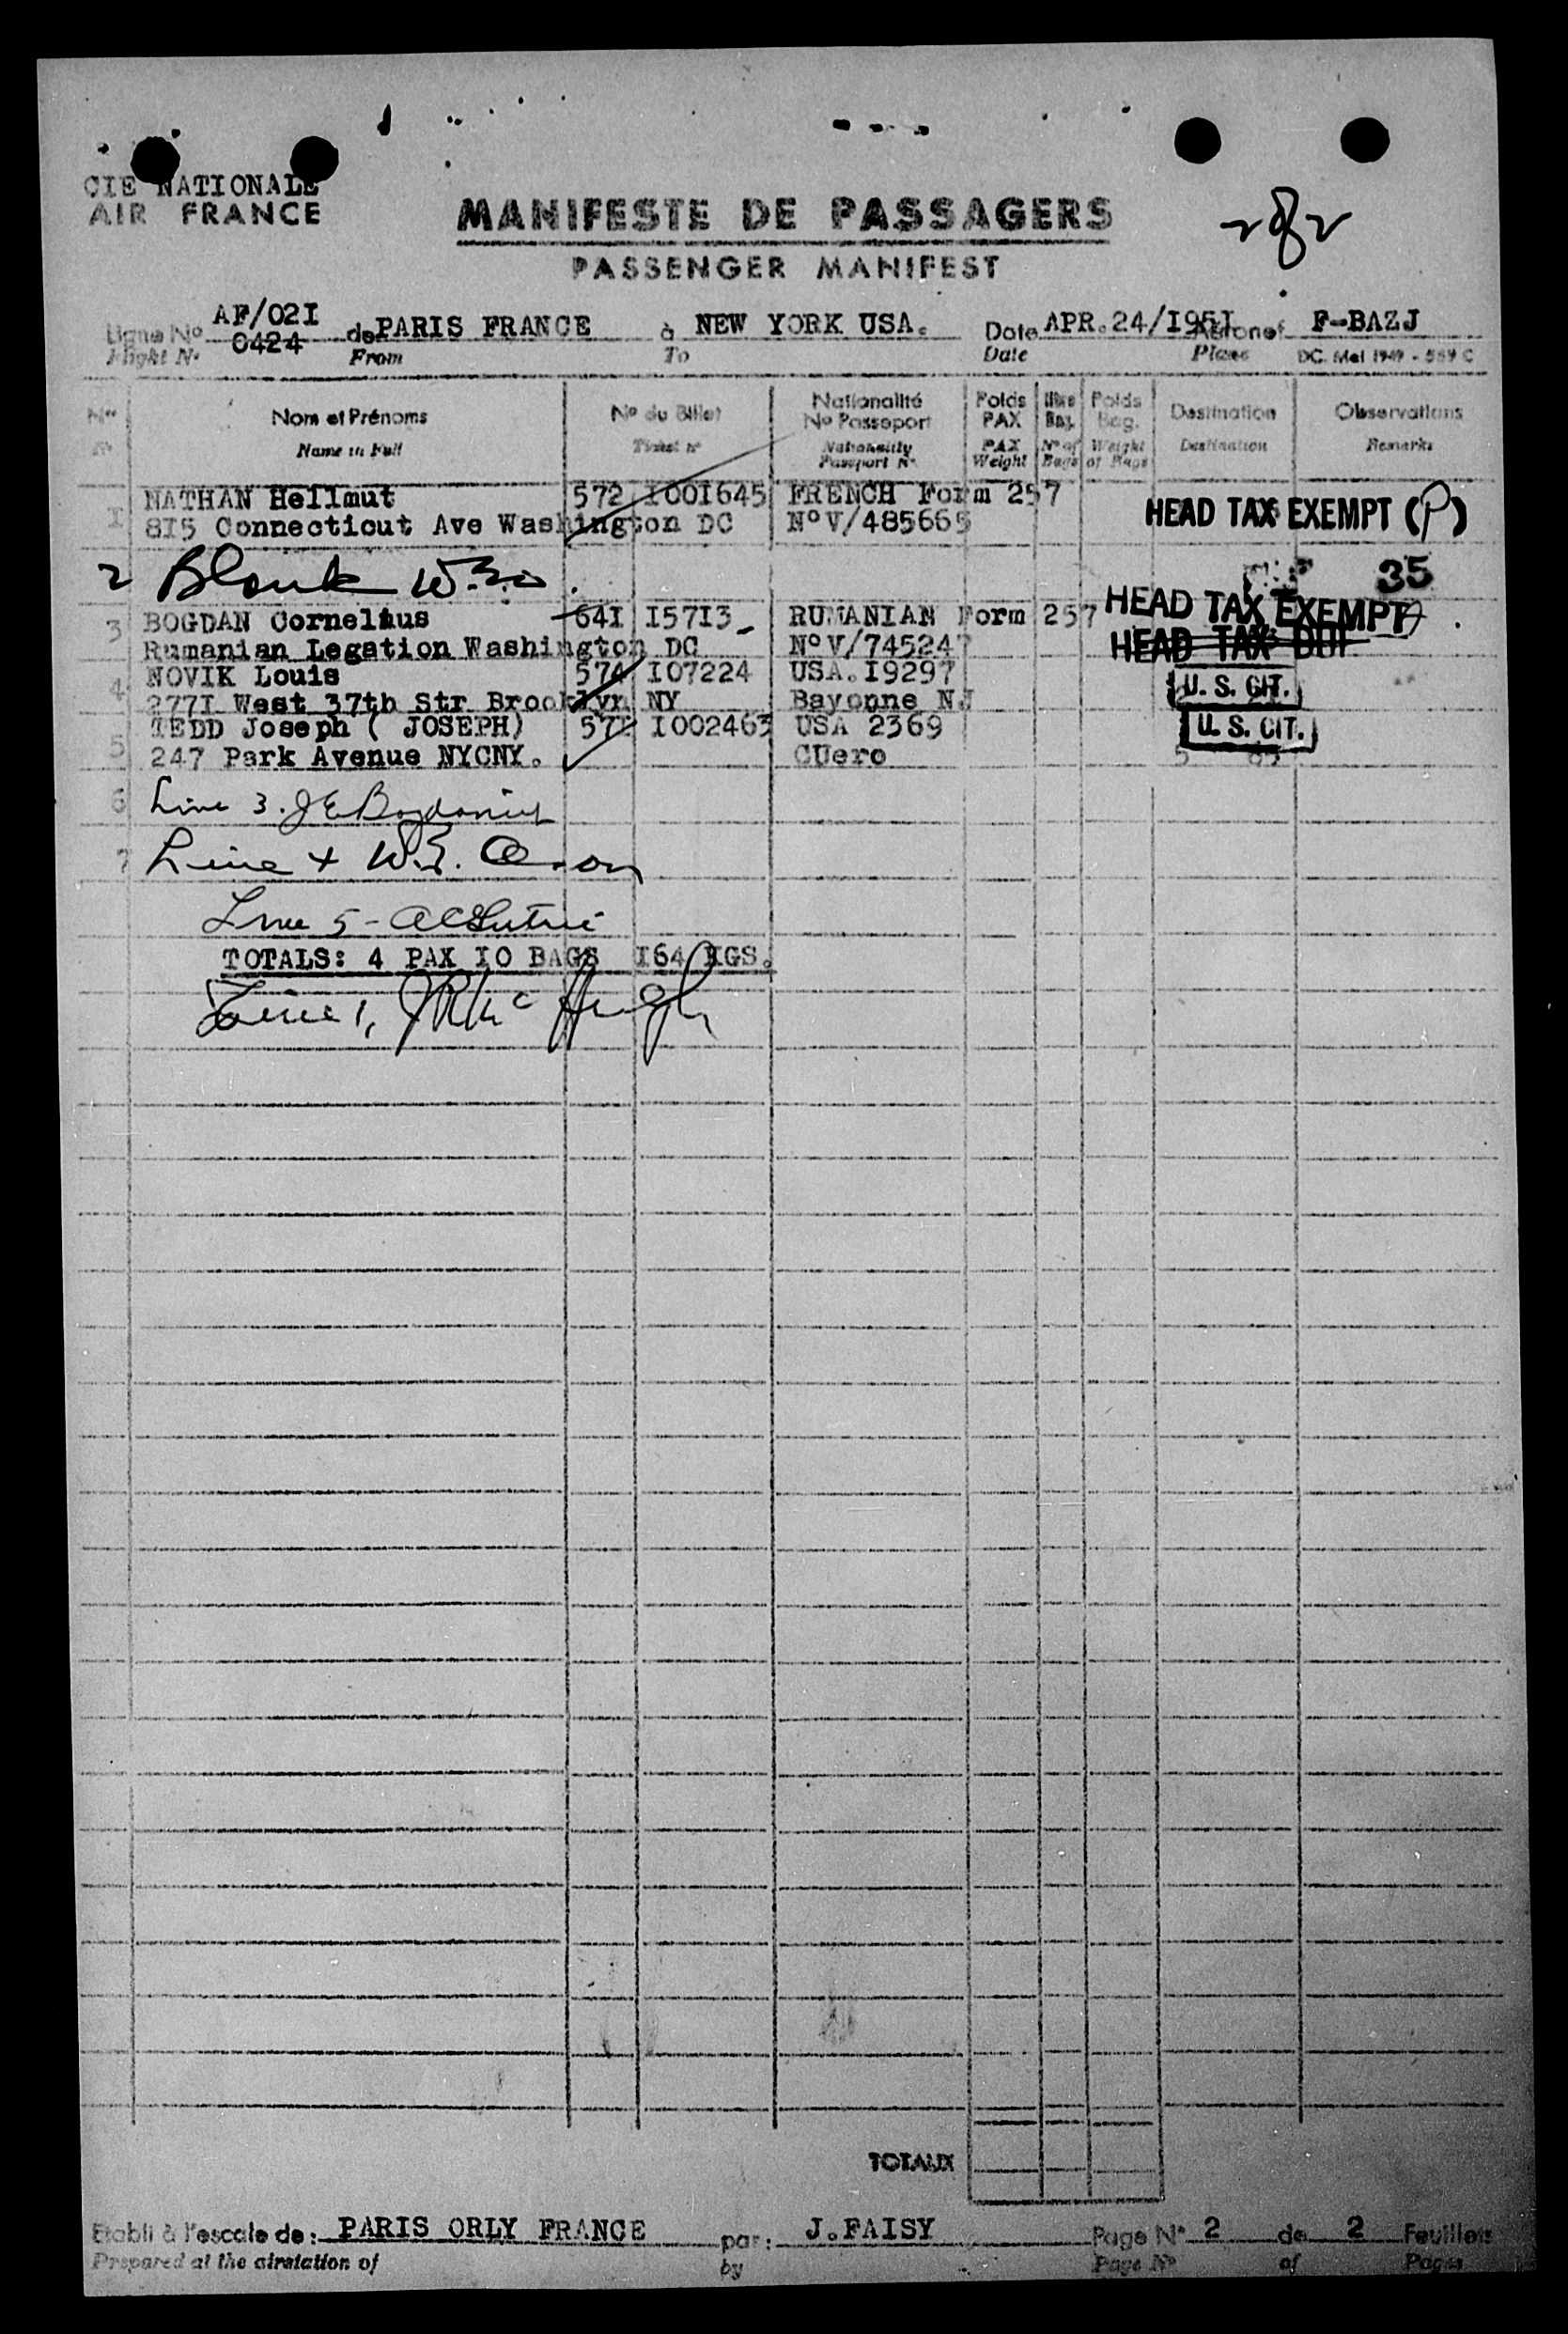 CIE NATIONALE
AIR FRANCE
MANIFESTE DE PASSAGERS
PASSENGER MANIFEST
2 of 2
Ligne No AF/02I 0424 de PARIS FRANCE à NEW YORK USA. Date APR.24/I95I Aéronef F-BAZJ
Flight No From To Date Plane DC. Mel 1949 - 559 C
Nos Nom et Prénoms No du Billet Nationalité No Passeport Poids PAX Nbre Bag. Poids Bag. Destination Observations
No Name in Full Ticket no Nationality Passport No PAX Weight No of Bags Weight of Bags Destination Remarks
1 NATHAN Hellmut 572 I00I645 FRENCH Form 257 HEAD TAX EXEMPT (P)
8I5 Connecticut Ave Washington DC No V/485665
2 Blank 35
3 BOGDAN Cornelius 64I I57I3 RUMANIAN Form 257 HEAD TAX EXEMPT
Rumanian Legation Washington DC No V/745247 HEAD TAX DUE
4 NOVIK Louis 574 I07224 USA.I9297 U. S. CIT.
277I West 37th Str Brooklyn NY Bayonne NJ
5 TEDD Joseph ( JOSEPH) 57I I002463 USA 2369 U. S. CIT.
247 Park Avenue NYCNY. CUero
6 Line 3.
7 Line 4 W.E.
Line 5 -
TOTALS: 4 PAX IO BAGS I64 KGS.
Line 1, McHugh
TOTAUX
Etabli à l'escale de: PARIS ORLY FRANCE par: J.FAISY Page No 2 de 2 Feuillets
Prepared at the airstation of by Page No of Pages